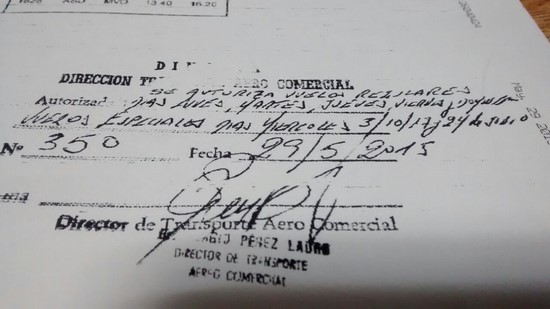 1828 ASU MVD 13.40 16.20
DIRECCION AERO COMERCIAL
SE AUTORIZA VUELOS REGULARES
Autorizad DIAS LUNES, MARTES, JUEVES, VIERNES,
VUELOS ESPECIALES DIAS MIERCOLES 3/10/17/24 de JUNIO
Nº 350 Fecha 29/5/2015
Director de Transporte Aero Comercial
PEREZ LAURO
DIRECTOR DE TRANSPORTE
AEREO COMERCIAL